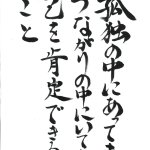 孤独の中にあっても
つながりの中にいて
己を肯定できる
こと